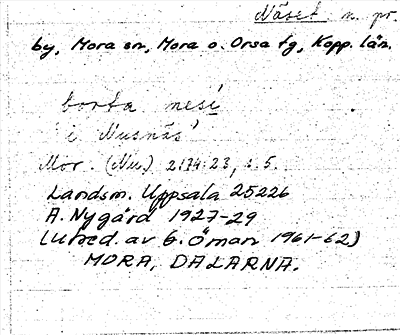 Näset n. pr.
by, Mora sn, Mora o. Orsa tg, Kopp. län.
borta nesi
'i Nusnäs'
Mor. (Nu.) 2174:23, s. 5.
Landsm. Uppsala 25226
A. Nygård 1927-29
(utred. av G. Öman 1961-62)
MORA, DALARNA.